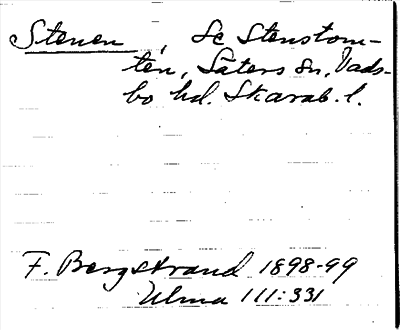 Stenen, Se Stenstom-
ten, Säters sn, Vads-
bo hd. Skarab. l.
F. Bergstrand 1898-99
Ulma 111:331